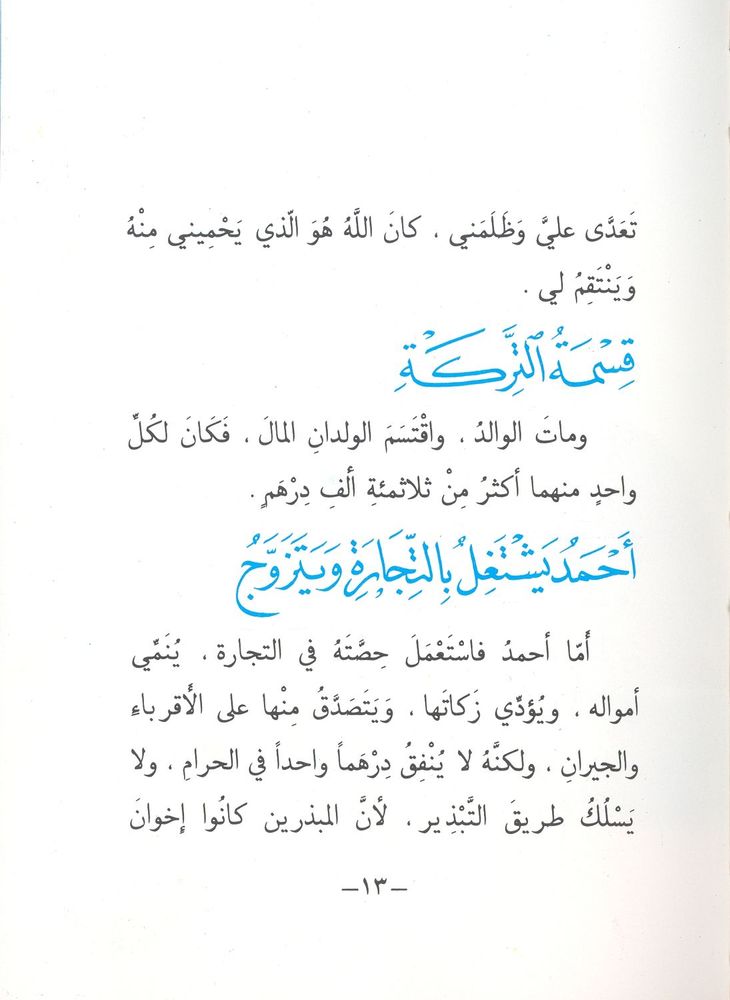 تَعَدَّى عليَّ وَظَلَمَني ، كانَ اللَّهُ هُوَ الّذي يَحْمِيني مِنْهُ
وَيَنْتَقِمُ لي .
قِسْمَةُ التَّرِكَةِ
وماتَ الوالدُ ، واقْتَسَمَ الولدانِ المالَ ، فَكَانَ لكُلِّ
واحدٍ منهما أكثرُ مِنْ ثلاثمئةِ ألفِ دِرْهَمٍ .
أَحْمَدُ يَشْتَغِلُ بِالتِّجَارَةِ وَيَتَزَوَّجُ
أَمّا أحمدُ فاسْتَعْمَلَ حِصَّتَهُ في التجارة ، يُنَمِّي
أمواله ، ويُؤدِّي زَكاتَها ، وَيَتَصَدَّقُ مِنْها على الأَقرباءِ
والجيرانِ ، ولكنَّهُ لا يُنْفِقُ دِرْهَماً واحداً في الحرامِ ، ولا
يَسْلُكُ طريقَ التَّبْذِير ، لأنَّ المبذرين كانُوا إخوانَ
–١٣–